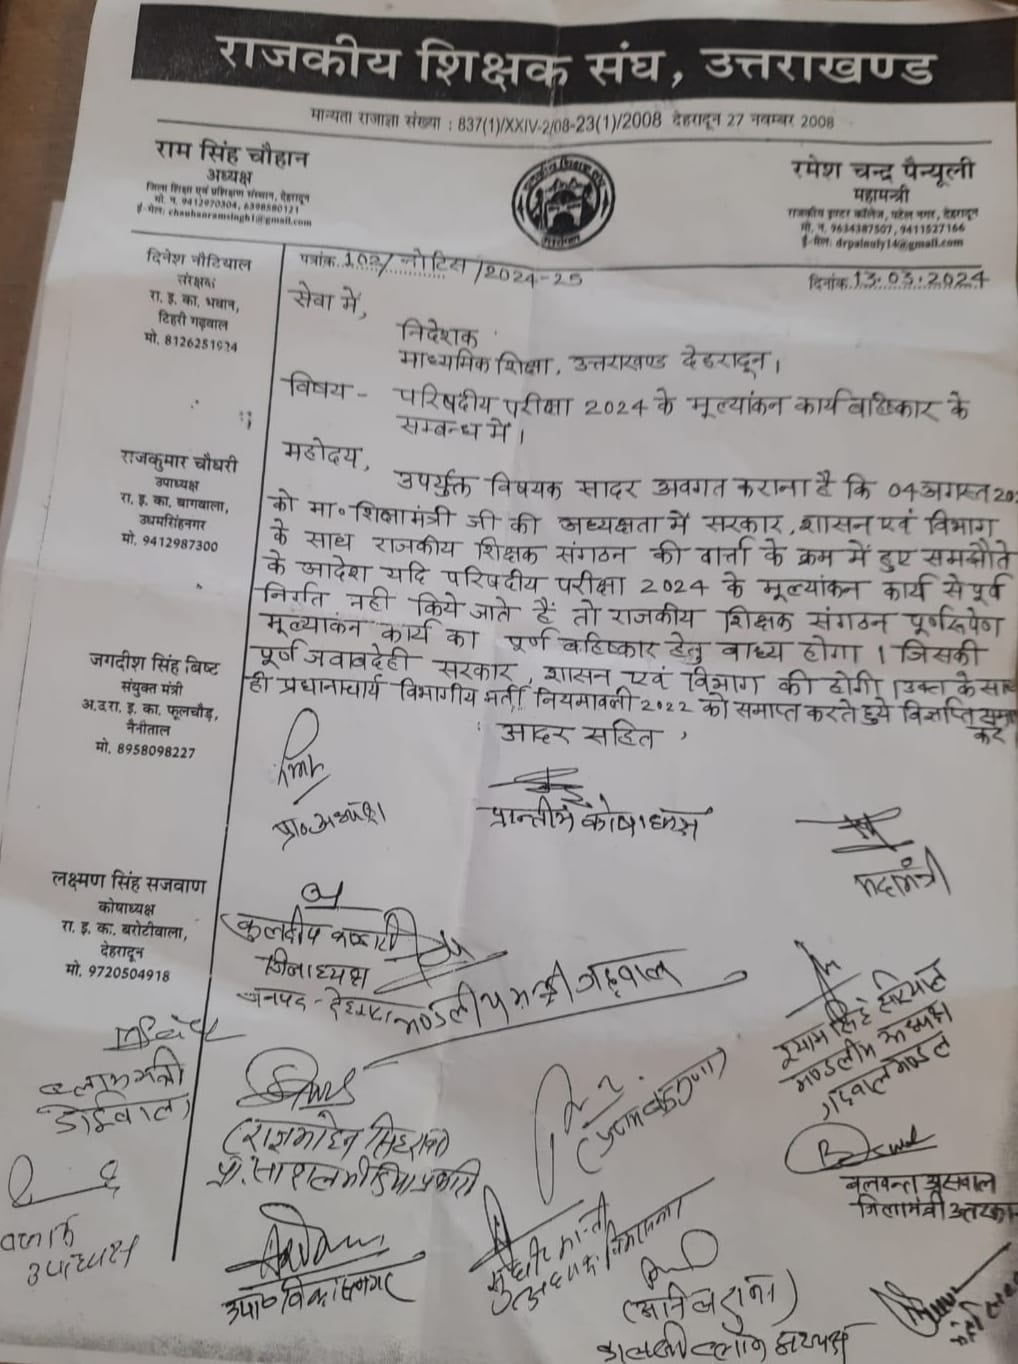 राजकीय शिक्षक संघ, उत्तराखण्ड
मान्यता राजाज्ञा संख्या : 837(1)/XXIV-2/08-23(1)/2008 देहरादून 27 नवम्बर 2008
राम सिंह चौहान
अध्यक्ष
जिला शिक्षा एवं प्रशिक्षण संस्थान, देहरादून
मो. न. 9412970304, 6398580121
ई-मेल: chauhanramsingh1@gmail.com
रमेश चन्द्र पैन्यूली
महामन्त्री
राजकीय इण्टर कॉलेज, पटेल नगर, देहरादून
मो. न. 9634387507, 9411527166
ई-मेल: drpainuly14@gmail.com
दिनेश नौटियाल
संरक्षक
रा. इ. का. भवान,
टिहरी गढ़वाल
मो. 8126251924
राजकुमार चौधरी
उपाध्यक्ष
रा. इ. का. बागवाला,
उधमसिंहनगर
मो. 9412987300
जगदीश सिंह बिष्ट
संयुक्त मंत्री
अ.उ.रा. इ. का. फूलचौड़,
नैनीताल
मो. 8958098227
लक्ष्मण सिंह सजवाण
कोषाध्यक्ष
रा. इ. का. बरोटीवाला,
देहरादून
मो. 9720504918
पत्रांक 102/नोटिस/2024-25
दिनांक 13.03.2024
सेवा में,
निदेशक
माध्यमिक शिक्षा, उत्तराखण्ड देहरादून।
विषय - परिषदीय परीक्षा 2024 के मूल्यांकन कार्य बहिष्कार के
सम्बन्ध में।
महोदय,
उपर्युक्त विषयक सादर अवगत कराना है कि 04 अगस्त
को मा॰ शिक्षामंत्री जी की अध्यक्षता में सरकार, शासन एवं विभाग
के साथ राजकीय शिक्षक संगठन की वार्ता के क्रम में हुए समझौते
के आदेश यदि परिषदीय परीक्षा 2024 के मूल्यांकन कार्य से पूर्व
निर्गत नही किये जाते हैं तो राजकीय शिक्षक संगठन पूर्णरूपेण
मूल्यांकन कार्य का पूर्ण बहिष्कार हेतु वाध्य होगा। जिसकी
पूर्ण जवाबदेही सरकार, शासन एवं विभाग की होगी। उक्त के साथ
ही प्रधानाचार्य विभागीय भर्ती नियमावली 2022 को समाप्त करते हुये विज्ञप्ति
करें
आदर सहित,
प्रा॰ अध्यक्ष
प्रान्तीय कोषाध्यक्ष
महामंत्री
कुलदीप
जिलाध्यक्ष
जनपद - देहरादून
मण्डलीय मन्त्री गढ़वाल
श्याम सिंह
मण्डलीय अध्यक्ष
गढ़वाल मण्डल
ब्लाक मंत्री
डोईवाला
बलवन्त असवाल
जिलामंत्री
ब्लाक
उपाध्यक्ष
उपा॰ विकासनगर
ब्लाक अध्यक्ष